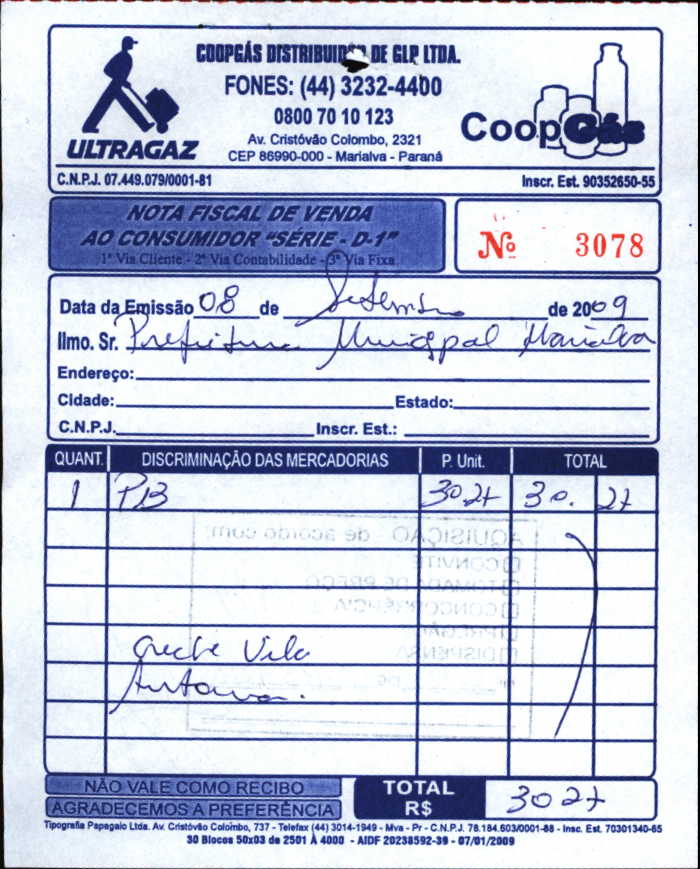 COOPGÁS DISTRIBUIDORA DE GLP LTDA.
FONES: (44) 3232-4400
0800 70 10 123
Av. Cristóvão Colombo, 2321
CEP 86990-000 - Marialva - Paraná
ULTRAGAZ
CoopGás
C.N.P.J. 07.449.079/0001-81
Inscr. Est. 90352650-55
NOTA FISCAL DE VENDA
AO CONSUMIDOR "SÉRIE - D-1"
1ª Via Cliente - 2ª Via Contabilidade - 3ª Via Fixa
Nº 3078
Data da Emissão 08 de Setembro de 2009
Ilmo. Sr. Prefeitura Municipal Marialva
Endereço:
Cidade: Estado:
C.N.P.J. Inscr. Est.:
QUANT. DISCRIMINAÇÃO DAS MERCADORIAS P. Unit. TOTAL
1 P13 30 27 30. 27
AQUISIÇÃO - de acordo com:
CONVITE
TOMADA DE PREÇO
CONCORRÊNCIA
PREGÃO
DISPENSA
Creche Vila
Antonio.
NÃO VALE COMO RECIBO
AGRADECEMOS A PREFERÊNCIA
TOTAL R$ 30 27
Tipografia Papagaio Ltda. Av. Cristóvão Colombo, 737 - Telefax (44) 3014-1949 - Mva - Pr - C.N.P.J. 78.184.603/0001-88 - Insc. Est. 70301340-65
30 Blocos 50x03 de 2501 À 4000 - AIDF 20238592-39 - 07/01/2009